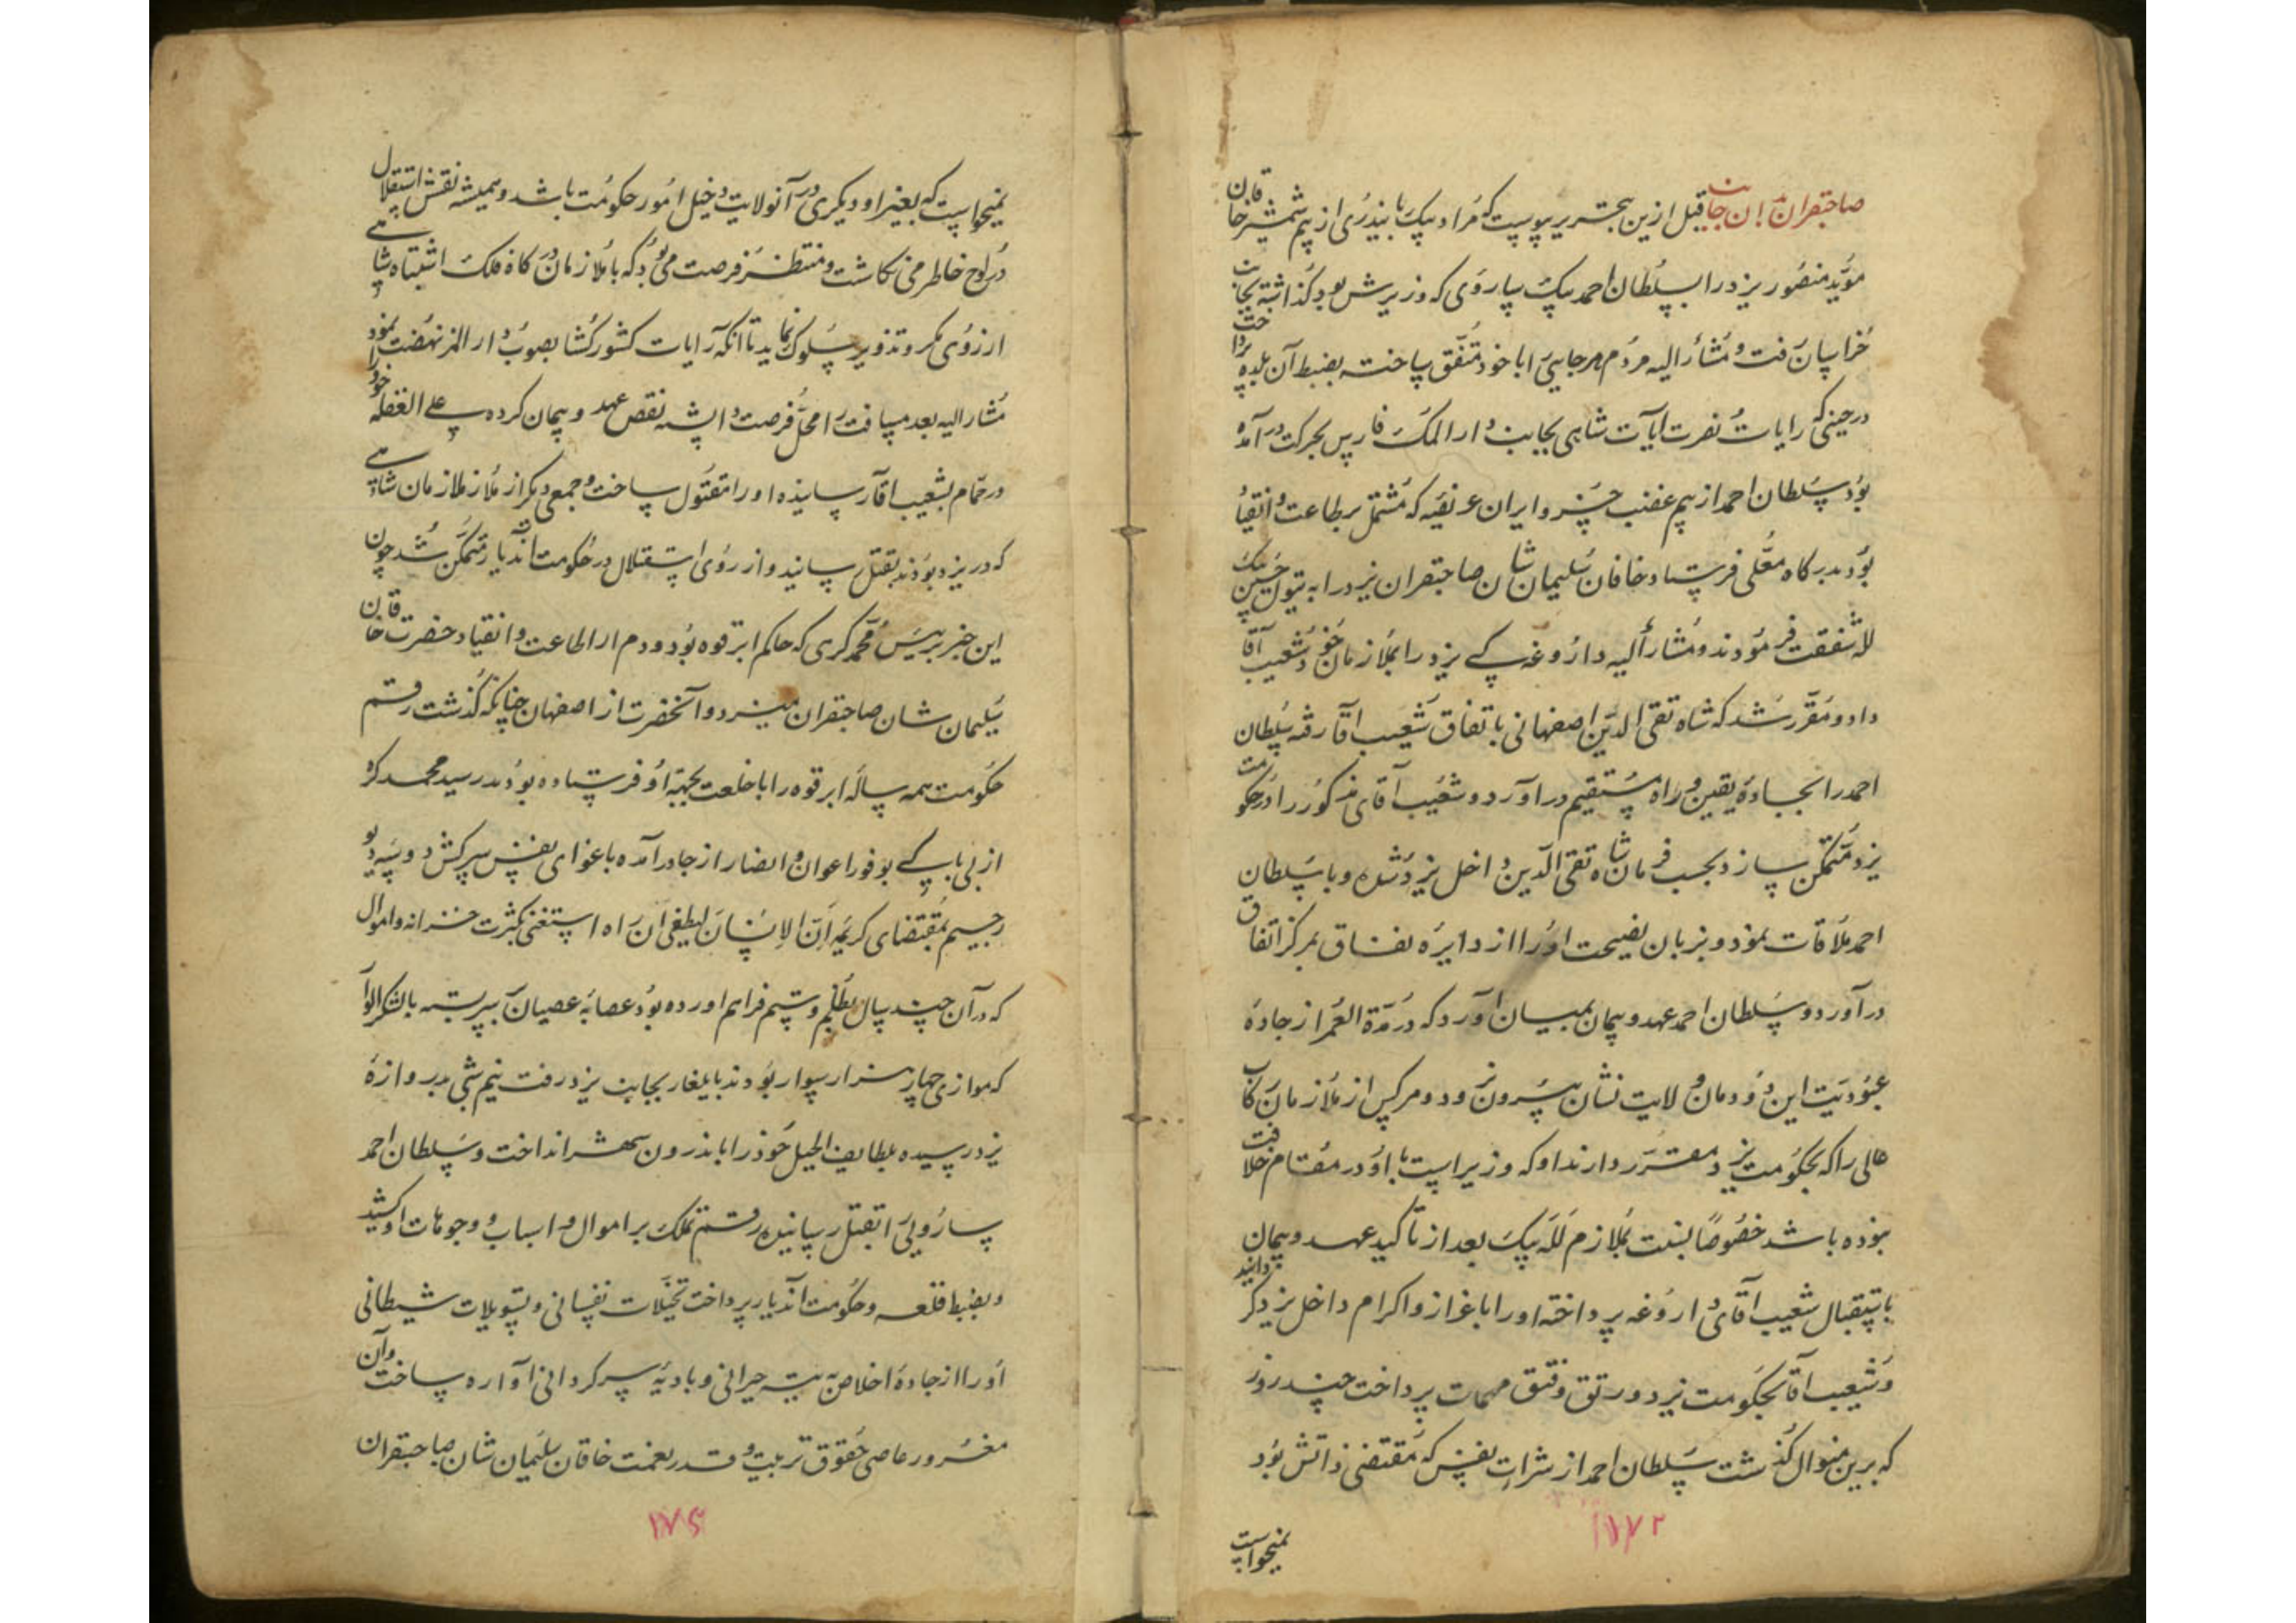 صاحبقران بان جانب قبل ازین بتحریر پیوست که مراد بیک بایندری از بیم شمشیر خاقان
مؤید منصور یزد را بسلطان احمد بیک ساروی که وزیرش بود گذاشته بجانب
خراسان رفت و مشار الیه مردم هر جایی را با خود متفق ساخته بضبط آن بلده پرداخت
در حینی که رایات نصرت آیات شاهی بجانب دار الملک فارس بحرکت در آمده
بود سلطان احمد از بیم غضب خسرو ایران عریضه که مشتمل بر طاعت و انقیاد
بود بدرگاه معلی فرستاد خاقان سلیمان شان صاحبقران یزد را به تیول حسین بیک
لله شفقت فرمودند و مشار الیه داروغه‌گی یزد را بملازمان خود شعیب آقا
داد و مقرر شد که شاه تقی الدین اصفهانی باتفاق شعیب آقا رفته سلطان
احمد را بجاده یقین و راه مستقیم در آورد و شعیب آقای مذکور را در حکومت
یزد متمکن سازد بحسب فرمان شاه تقی الدین داخل یزد شده و با سلطان
احمد ملاقات نمود و بزبان نصیحت او را از دایره نفاق بمرکز اتفاق
در آورد و سلطان احمد عهد و پیمان بمیان آورد که در مدة العمر از جاده
عبودیت این دودمان ولایت نشان بیرون نرود و هر کس از ملازمان رکاب
عالی را که بحکومت یزد مقرر دارند او که وزیر است با او در مقام خلافت
نبوده باشد خصوصا بنسبت بملازم لله بیک بعد از تاکید عهد و پیمان
باستقبال شعیب آقای داروغه پرداخته او را باعزاز و اکرام داخل یزد گردانید
و شعیب آقا بحکومت یزد و رتق و فتق مهمات پرداخت چند روز
که برین منوال گذشت سلطان احمد از شرارت نفس که مقتضی ذاتش بود
نمیخواست
۱۷۲
نمیخواست که بغیر او دیگری در آنولایت دخیل امور حکومت باشد و همیشه نقش استقلال
در لوح خاطر می نگاشت و منتظر فرصت می بود که با ملازمان درگاه فلک اشتباه شاهی
از روی مکر و تذویر سلوک نماید تا آنکه رایات کشورگشا بصوب دار المرز نهضت نمود
مشار الیه بعد مسافت را محل فرصت دانسته نقض عهد و پیمان کرده علی الغفله خود را
در حمام بشعیب آقا رسانیده او را مقتول ساخت و جمعی دیگر از ملازمان شاهی
که در یزد بودند بقتل رسانید و از روی استقلال در حکومت آندیار متمکن شد چون
این خبر برئیس محمد کرهی که حاکم ابرقوه بود و دم از اطاعت و انقیاد حضرت خاقان
سلیمان شان صاحبقران میزد و آنحضرت از اصفهان چنانکه گذشت رقم
حکومت همه ساله ابرقوه را با خلعت بجهة او فرستاده بودند رسید محمد کره
از بی باکی بوفور اعوان و انصار از جا در آمده باغوای نفس سرکش و وسوسه دیو
رجیم بمقتضای کریمه ان الانسان لیطغی ان راه استغنی بکثرت خزانه و اموال
که در آن چند سال بظلم و ستم فراهم آورده بود عصابه عصیان بر سر بسته با لشکر
که موازی چهار هزار سوار بودند بایلغار بجانب یزد رفت نیم شبی بدروازه
یزد رسیده بلطایف الحیل خود را باندرون شهر انداخت و سلطان احمد
سارویی را بقتل رسانیده رقم تملک بر اموال و اسباب و وجوهات او کشید
و بضبط قلعه و حکومت آندیار پرداخت تخیلات نفسانی و تسویلات شیطانی
او را از جاده اخلاص به تیه حیرانی و بادیه سرگردانی آواره ساخت و آن
مغرور عاصی حقوق تربیت و قدر نعمت خاقان سلیمان شان صاحبقران
۱۷۵